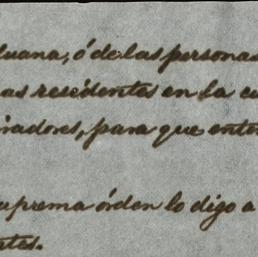 luana, ó de las personas
as resedentes en la
radores, para que
uprema órden lo digo a
tes.